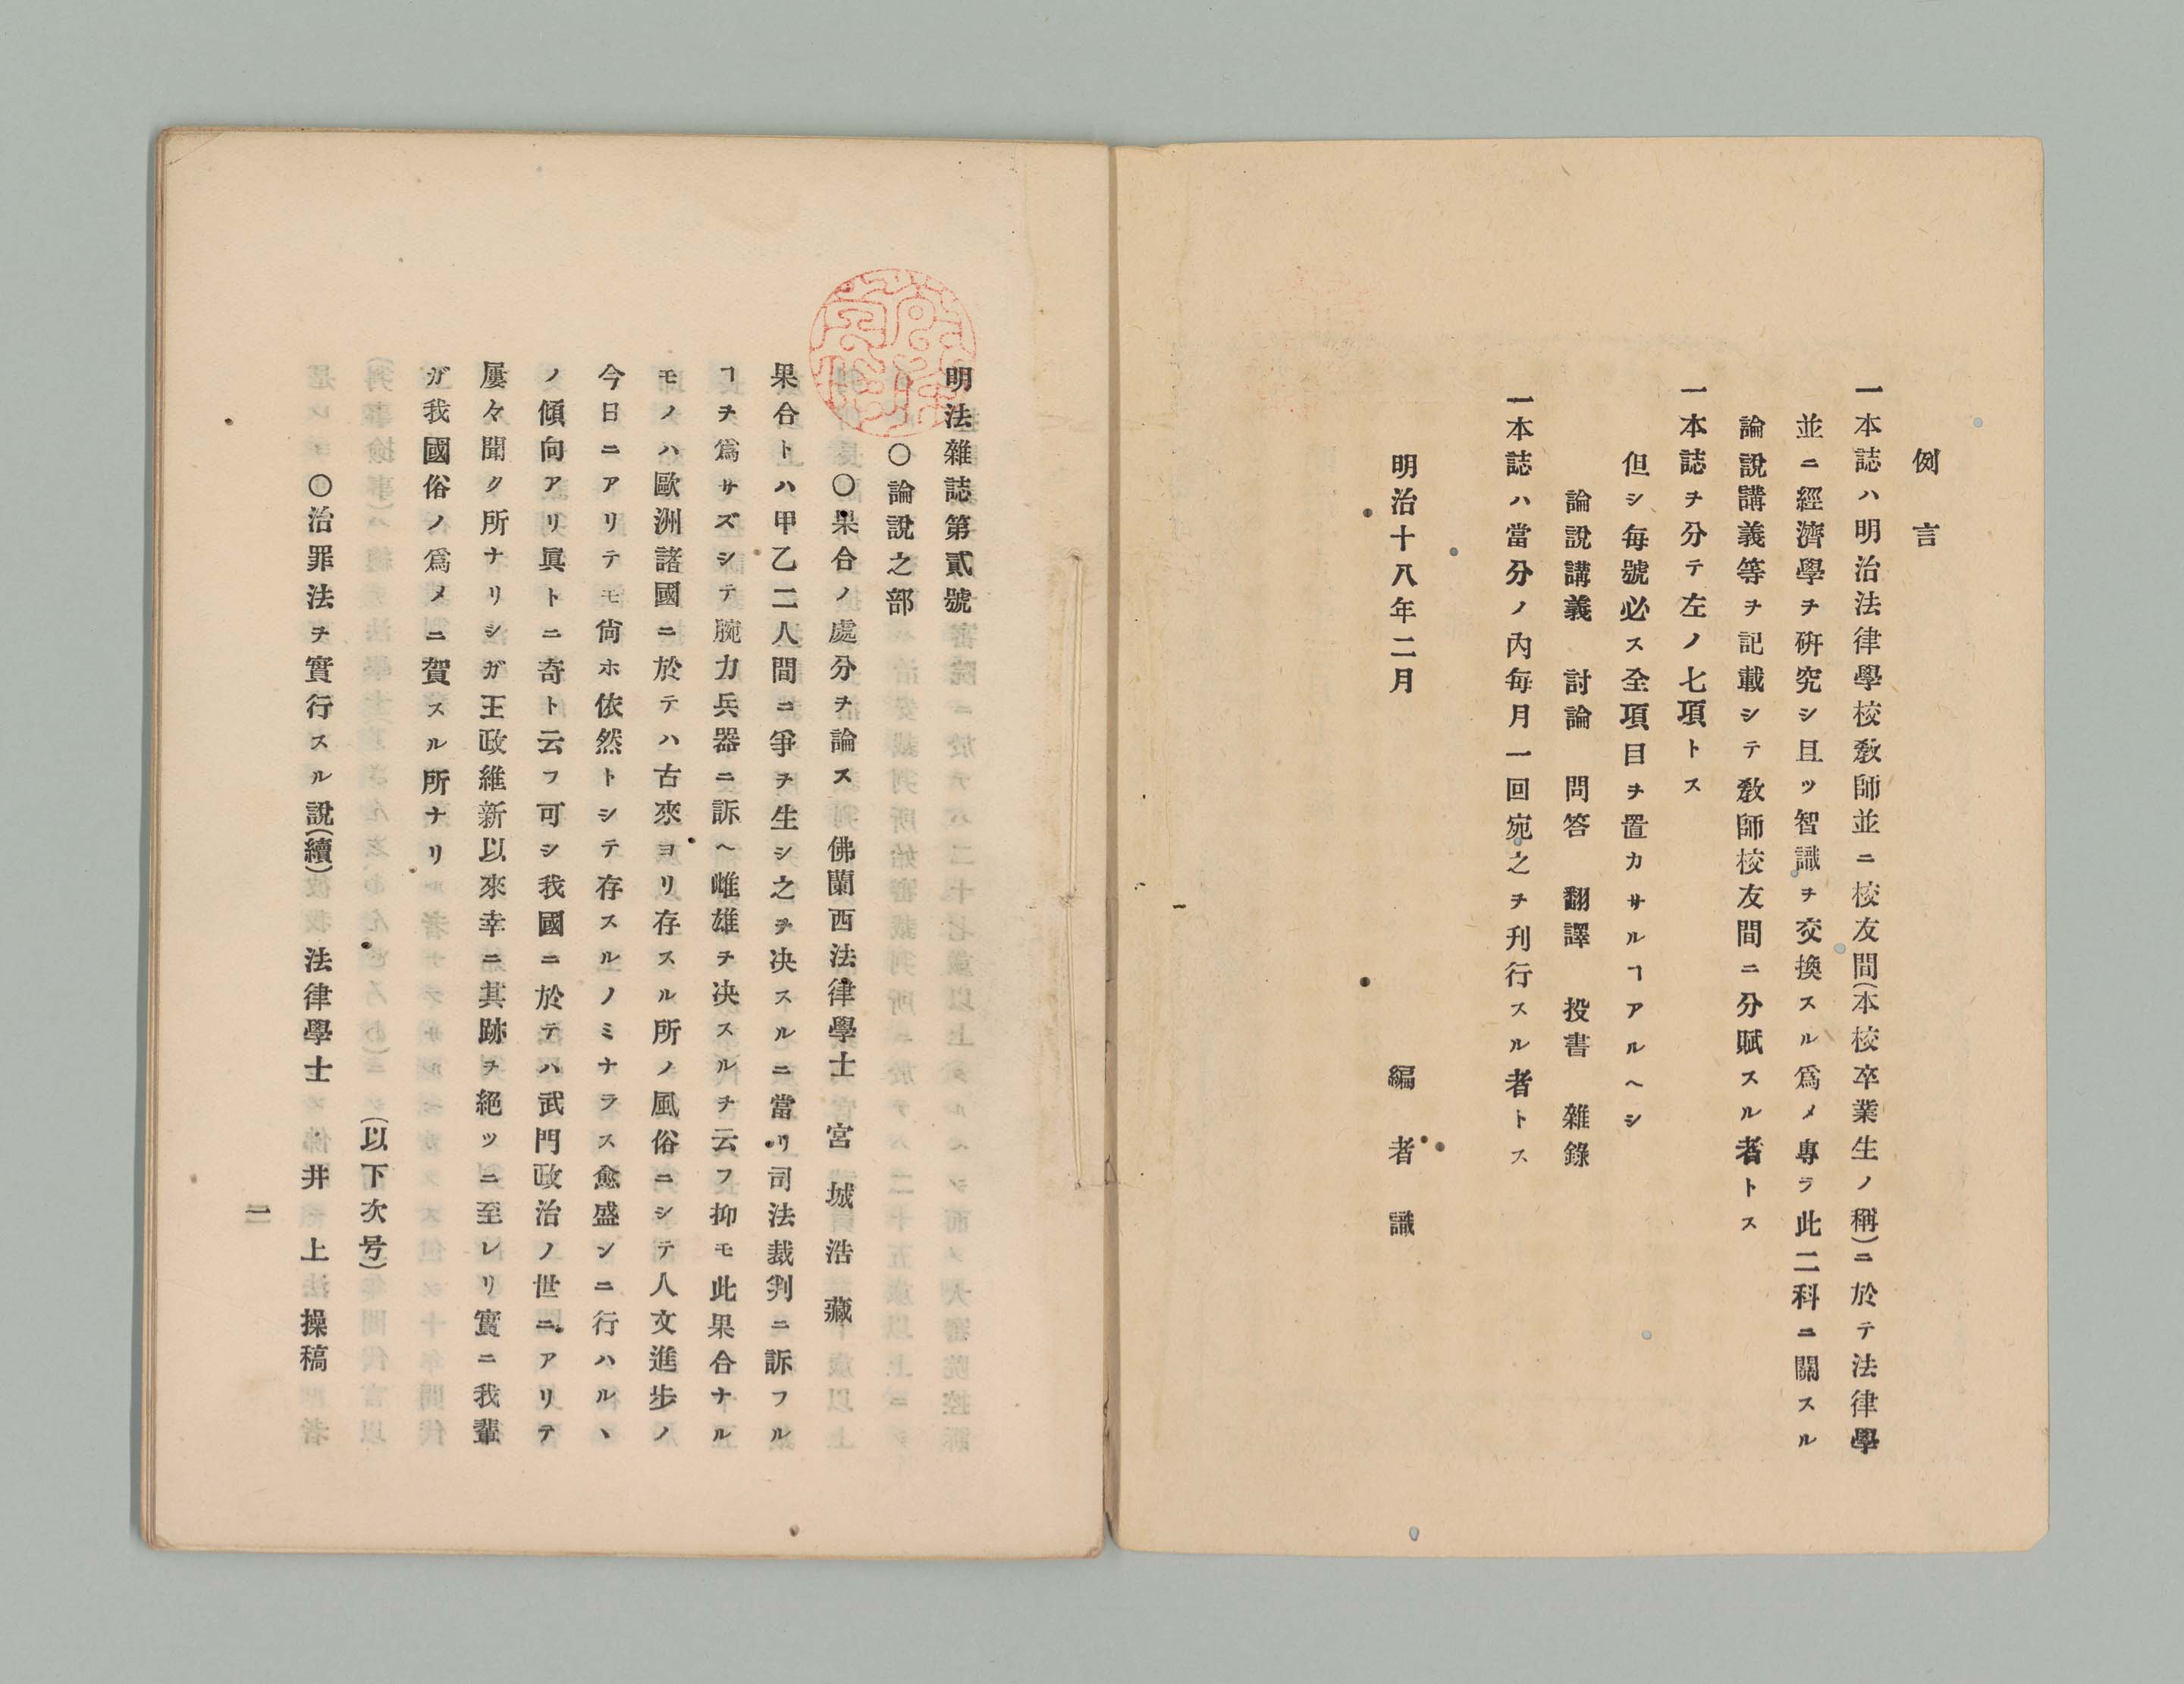 例言
一本誌ハ明治法律學校敎師並ニ校友間(本校卒業生ノ稱)ニ於テ法律學
並ニ經濟學ヲ硏究シ且ツ智識ヲ交換スル爲メ專ラ此二科ニ關スル
論說講義等ヲ記載シテ敎師校友間ニ分賦スル者トス
一本誌ヲ分テ左ノ七項トス
但シ每號必ス全項目ヲ置カサルヿアルヘシ
論說 講義 討論 問答 翻譯 投書 雜錄
一本誌ハ當分ノ內每月一回宛之ヲ刊行スル者トス
明治十八年二月
編者識
明法雜誌第貳號
○論說之部
○果合ノ處分ヲ論ス 佛蘭西法律學士 宮城浩藏
果合トハ甲乙二人間ニ爭ヲ生シ之ヲ決スルニ當リ司法裁判ニ訴フル
ヿヲ爲サズシテ腕力兵器ニ訴ヘ雌雄ヲ決スルヲ云フ抑モ此果合ナル
モノハ歐洲諸國ニ於テハ古來ヨリ存スル所ノ風俗ニシテ人文進步ノ
今日ニアリテモ尙ホ依然トシテ存スルノミナラス愈盛ンニ行ハルヽ
ノ傾向アリ眞トニ奇ト云フ可シ我國ニ於テハ武門政治ノ世ニアリテ
屢々聞ク所ナリシガ王政維新以來幸ニ其跡ヲ絕ツニ至レリ實ニ我輩
ガ我國俗ノ爲メニ賀スル所ナリ
(以下次号)
○治罪法ヲ實行スル說(續) 法律學士 井上操稿
一